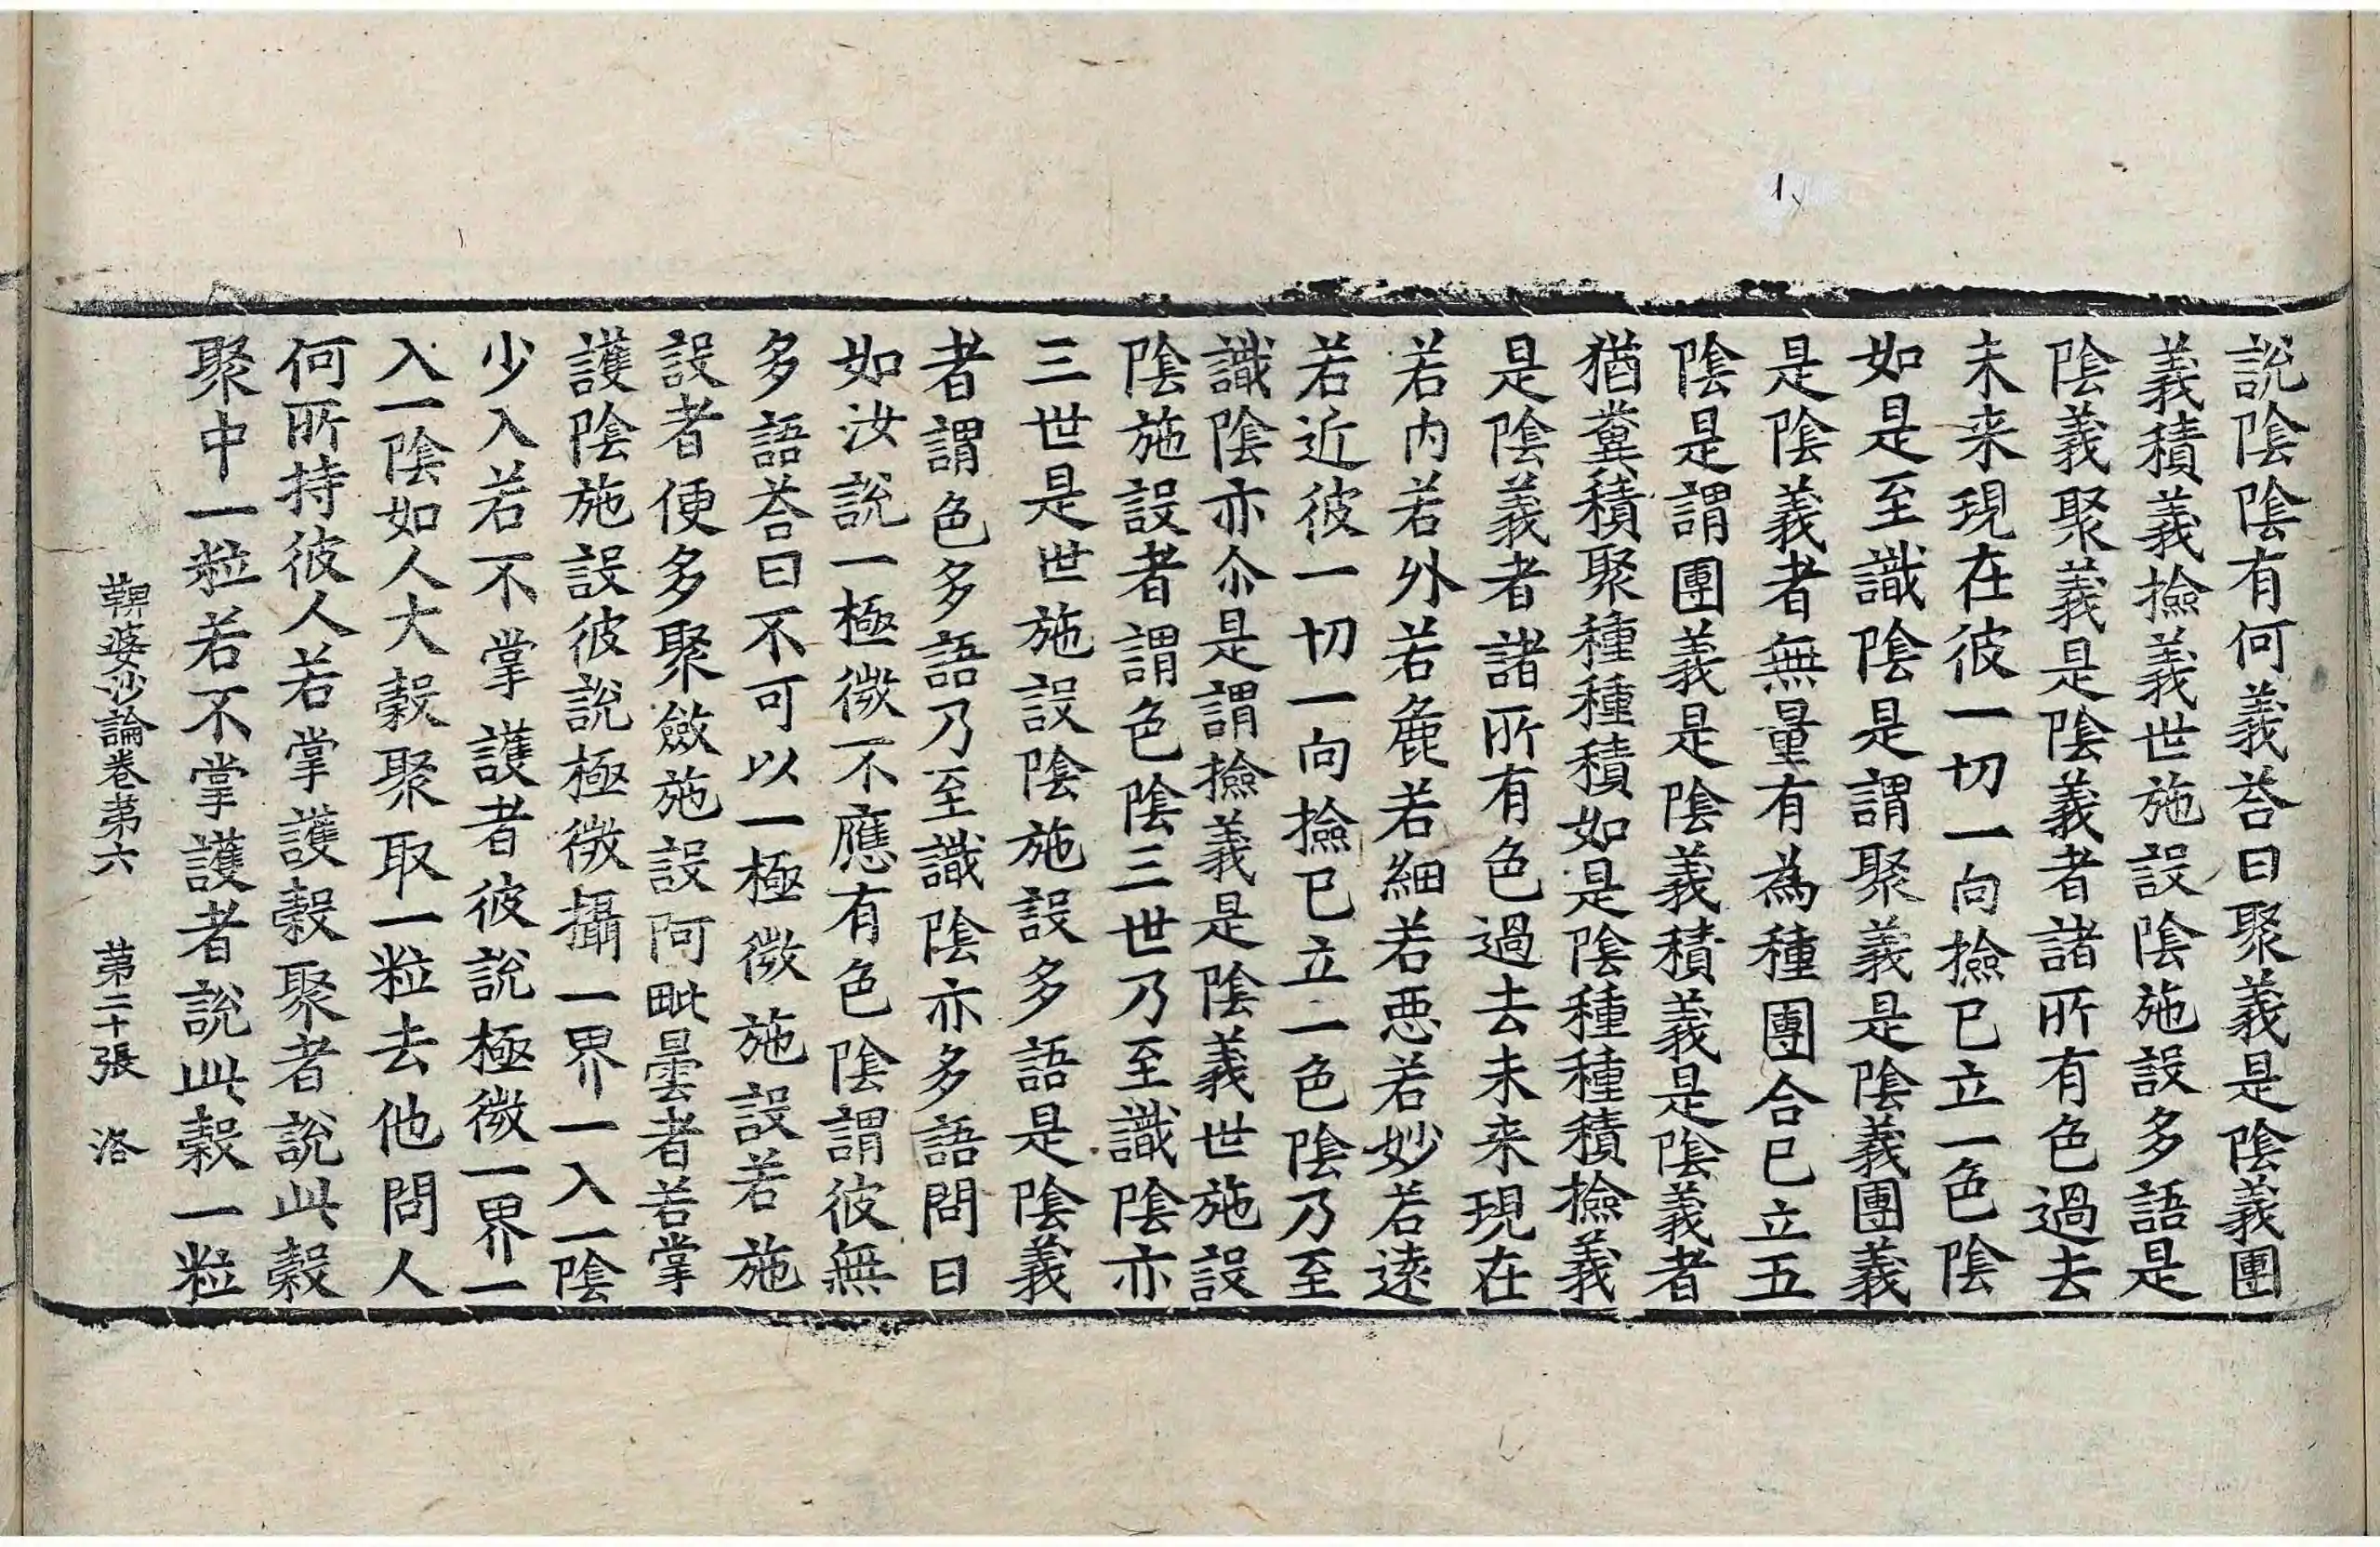 說陰陰有何義荅曰聚義是陰義團
義積義撿義世施設陰施設多語是
陰義聚義是陰義者諸所有色過去
未来現在彼一切一向撿已立一色陰
如是至識陰是謂聚義是陰義團義
是陰義者無量有為種團合已立五
陰是謂團義是陰義積義是陰義者
猶糞積聚種種積如是陰種種積撿義
是陰義者諸所有色過去未来現在
若內若外若麁若細若惡若妙若遠
若近彼一切一向撿已立一色陰乃至
識陰亦尒是謂撿義是陰義世施設
陰施設者謂色陰三世乃至識陰亦
三世是世施設陰施設多語是陰義
者謂色多語乃至識陰亦多語問曰
如汝說一極微不應有色陰謂彼無
多語荅曰不可以一極微施設若施
設者便多聚斂施設阿毗曇者若掌
護陰施設彼說極微攝一界一入一陰
少入若不掌護者彼說極微一界一
入一陰如人大穀聚取一粒去他問人
何所持彼人若掌護穀聚者說此穀
聚中一粒若不掌護者說此穀一粒
鞞婆沙論卷第六 第二十張 洛